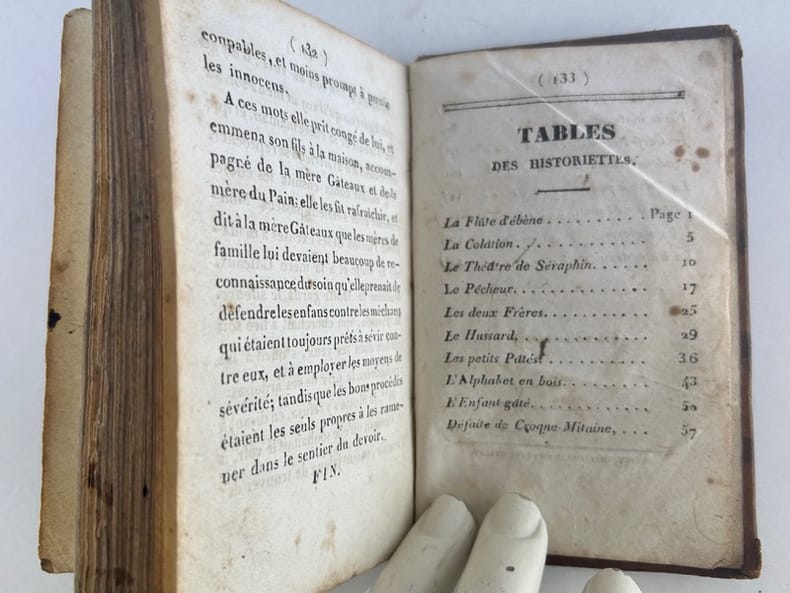 ( 132 )
coupables, et moins prompt à punir
les innocens.
A ces mots elle prit congé de lui, et
emmena son fils à la maison, accom-
pagné de la mère Gâteaux et de la
mère du Pain: elle les fit rafraichir, et
dit à la mère Gâteaux que les mères de
famille lui devaient beaucoup de re-
connaissance du soin qu'elle prenait de
défendre les enfans contre les méchans
qui étaient toujours prêts à sévir con-
tre eux, et à employer les moyens de
sévérité; tandis que les bons procédés
étaient les seuls propres à les rame-
ner dans le sentier du devoir.
FIN.
( 133 )
TABLES
DES HISTORIETTES.
La Flûte d'ébène . . . . . . . . . . Page 1
La Colation . . . . . . . . . . . . . 5
Le Théâtre de Séraphin. . . . . . 10
Le Pêcheur. . . . . . . . . . . . . . 17
Les deux Frères. . . . . . . . . . . 25
Le Hussard. . . . . . . . . . . . . . 29
Les petits Pâtés. . . . . . . . . . . 36
L'Alphabet en bois. . . . . . . . . 43
L'Enfant gâté. . . . . . . . . . . . 50
Défaite de Croque-Mitaine, . . . 57